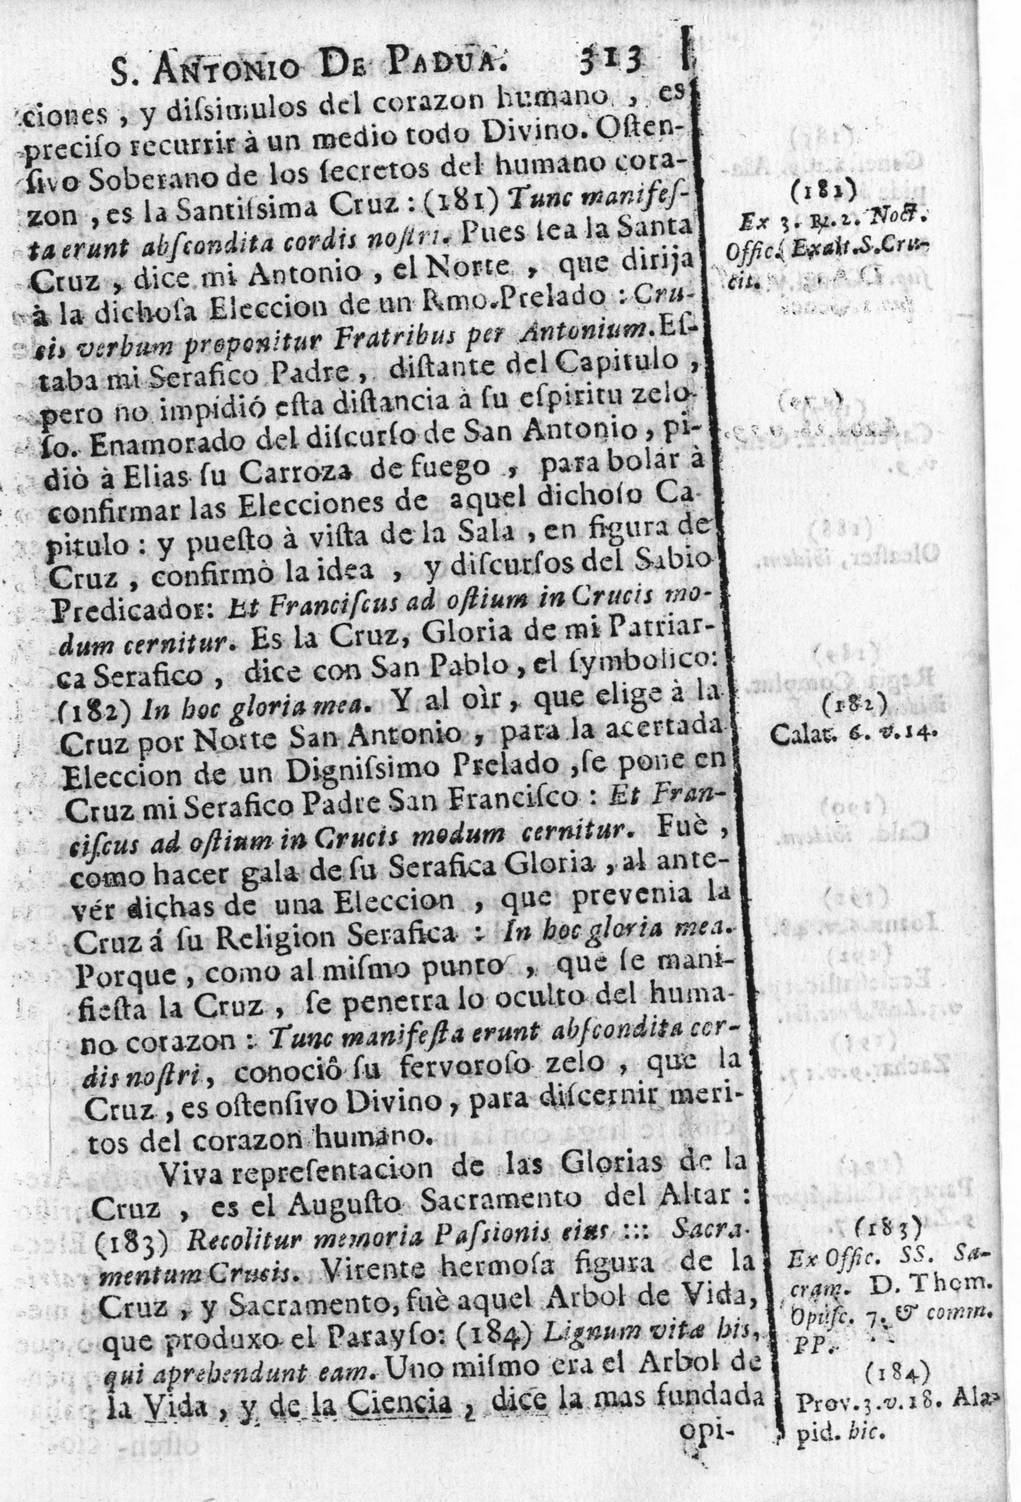 S. ANTONIO DE PADUA. 313
ciones, y dissimulos del corazon humano, es
preciso recurrir à un medio todo Divino. Osten-
sivo Soberano de los secretos del humano cora-
zon, es la Santissima Cruz: (181) Tunc manifes-
ta erunt abscondita cordis nostri. Pues sea la Santa
Cruz, dice mi Antonio, el Norte, que dirija
à la dichosa Eleccion de un Rmo. Prelado: Cru-
cis verbum proponitur Fratribus per Antonium. Es-
taba mi Serafico Padre, distante del Capitulo,
pero no impídió esta distancia à su espiritu zelo-
so. Enamorado del discurso de San Antonio, pi-
diò à Elias su Carroza de fuego, para bolar à
confirmar las Elecciones de aquel dichoso Ca-
pitulo: y puesto à vista de la Sala, en figura de
Cruz, confirmò la idea, y discursos del Sabio
Predicador: Et Franciscus ad ostium in Crucis mo-
dum cernitur. Es la Cruz, Gloria de mi Patriar-
ca Serafico, dice con San Pablo, el symbolico:
(182) In hoc gloria mea. Y al oìr, que elige à la
Cruz por Norte San Antonio, para la acertada
Eleccion de un Dignissimo Prelado, se pone en
Cruz mi Serafico Padre San Francisco: Et Fran-
ciscus ad ostium in Crucis modum cernitur. Fuè,
como hacer gala de su Serafica Gloria, al ante-
vér dichas de una Eleccion, que prevenia la
Cruz á su Religion Serafica: In hoc gloria mea.
Porque, como al mismo punto, que se mani-
fiesta la Cruz, se penetra lo oculto del huma-
no corazon: Tunc manifesta erunt abscondita cor-
dis nostri, conociô su fervoroso zelo, que la
Cruz, es ostensivo Divino, para discernir meri-
tos del corazon humano.
Viva representacion de las Glorias de la
Cruz, es el Augusto Sacramento del Altar:
(183) Recolitur memoria Passionis eius ::: Sacra-
mentum Crucis. Virente hermosa figura de la
Cruz, y Sacramento, fuè aquel Arbol de Vida,
que produxo el Parayso: (184) Lignum vitæ his,
qui aprehendunt eam. Uno mismo era el Arbol de
la Vida, y de la Ciencia, dice la mas fundada
opi-
(181)
Ex 3. ℟. 2. Noct.
Offic. Exalt. S. Cru-
cis.
(182)
Calat. 6. v. 14.
(183)
Ex Offic. SS. Sa-
cram. D. Thom.
Opusc. 7. & comm.
PP.
(184)
Prov. 3. v. 18. Ala-
pid. hic.